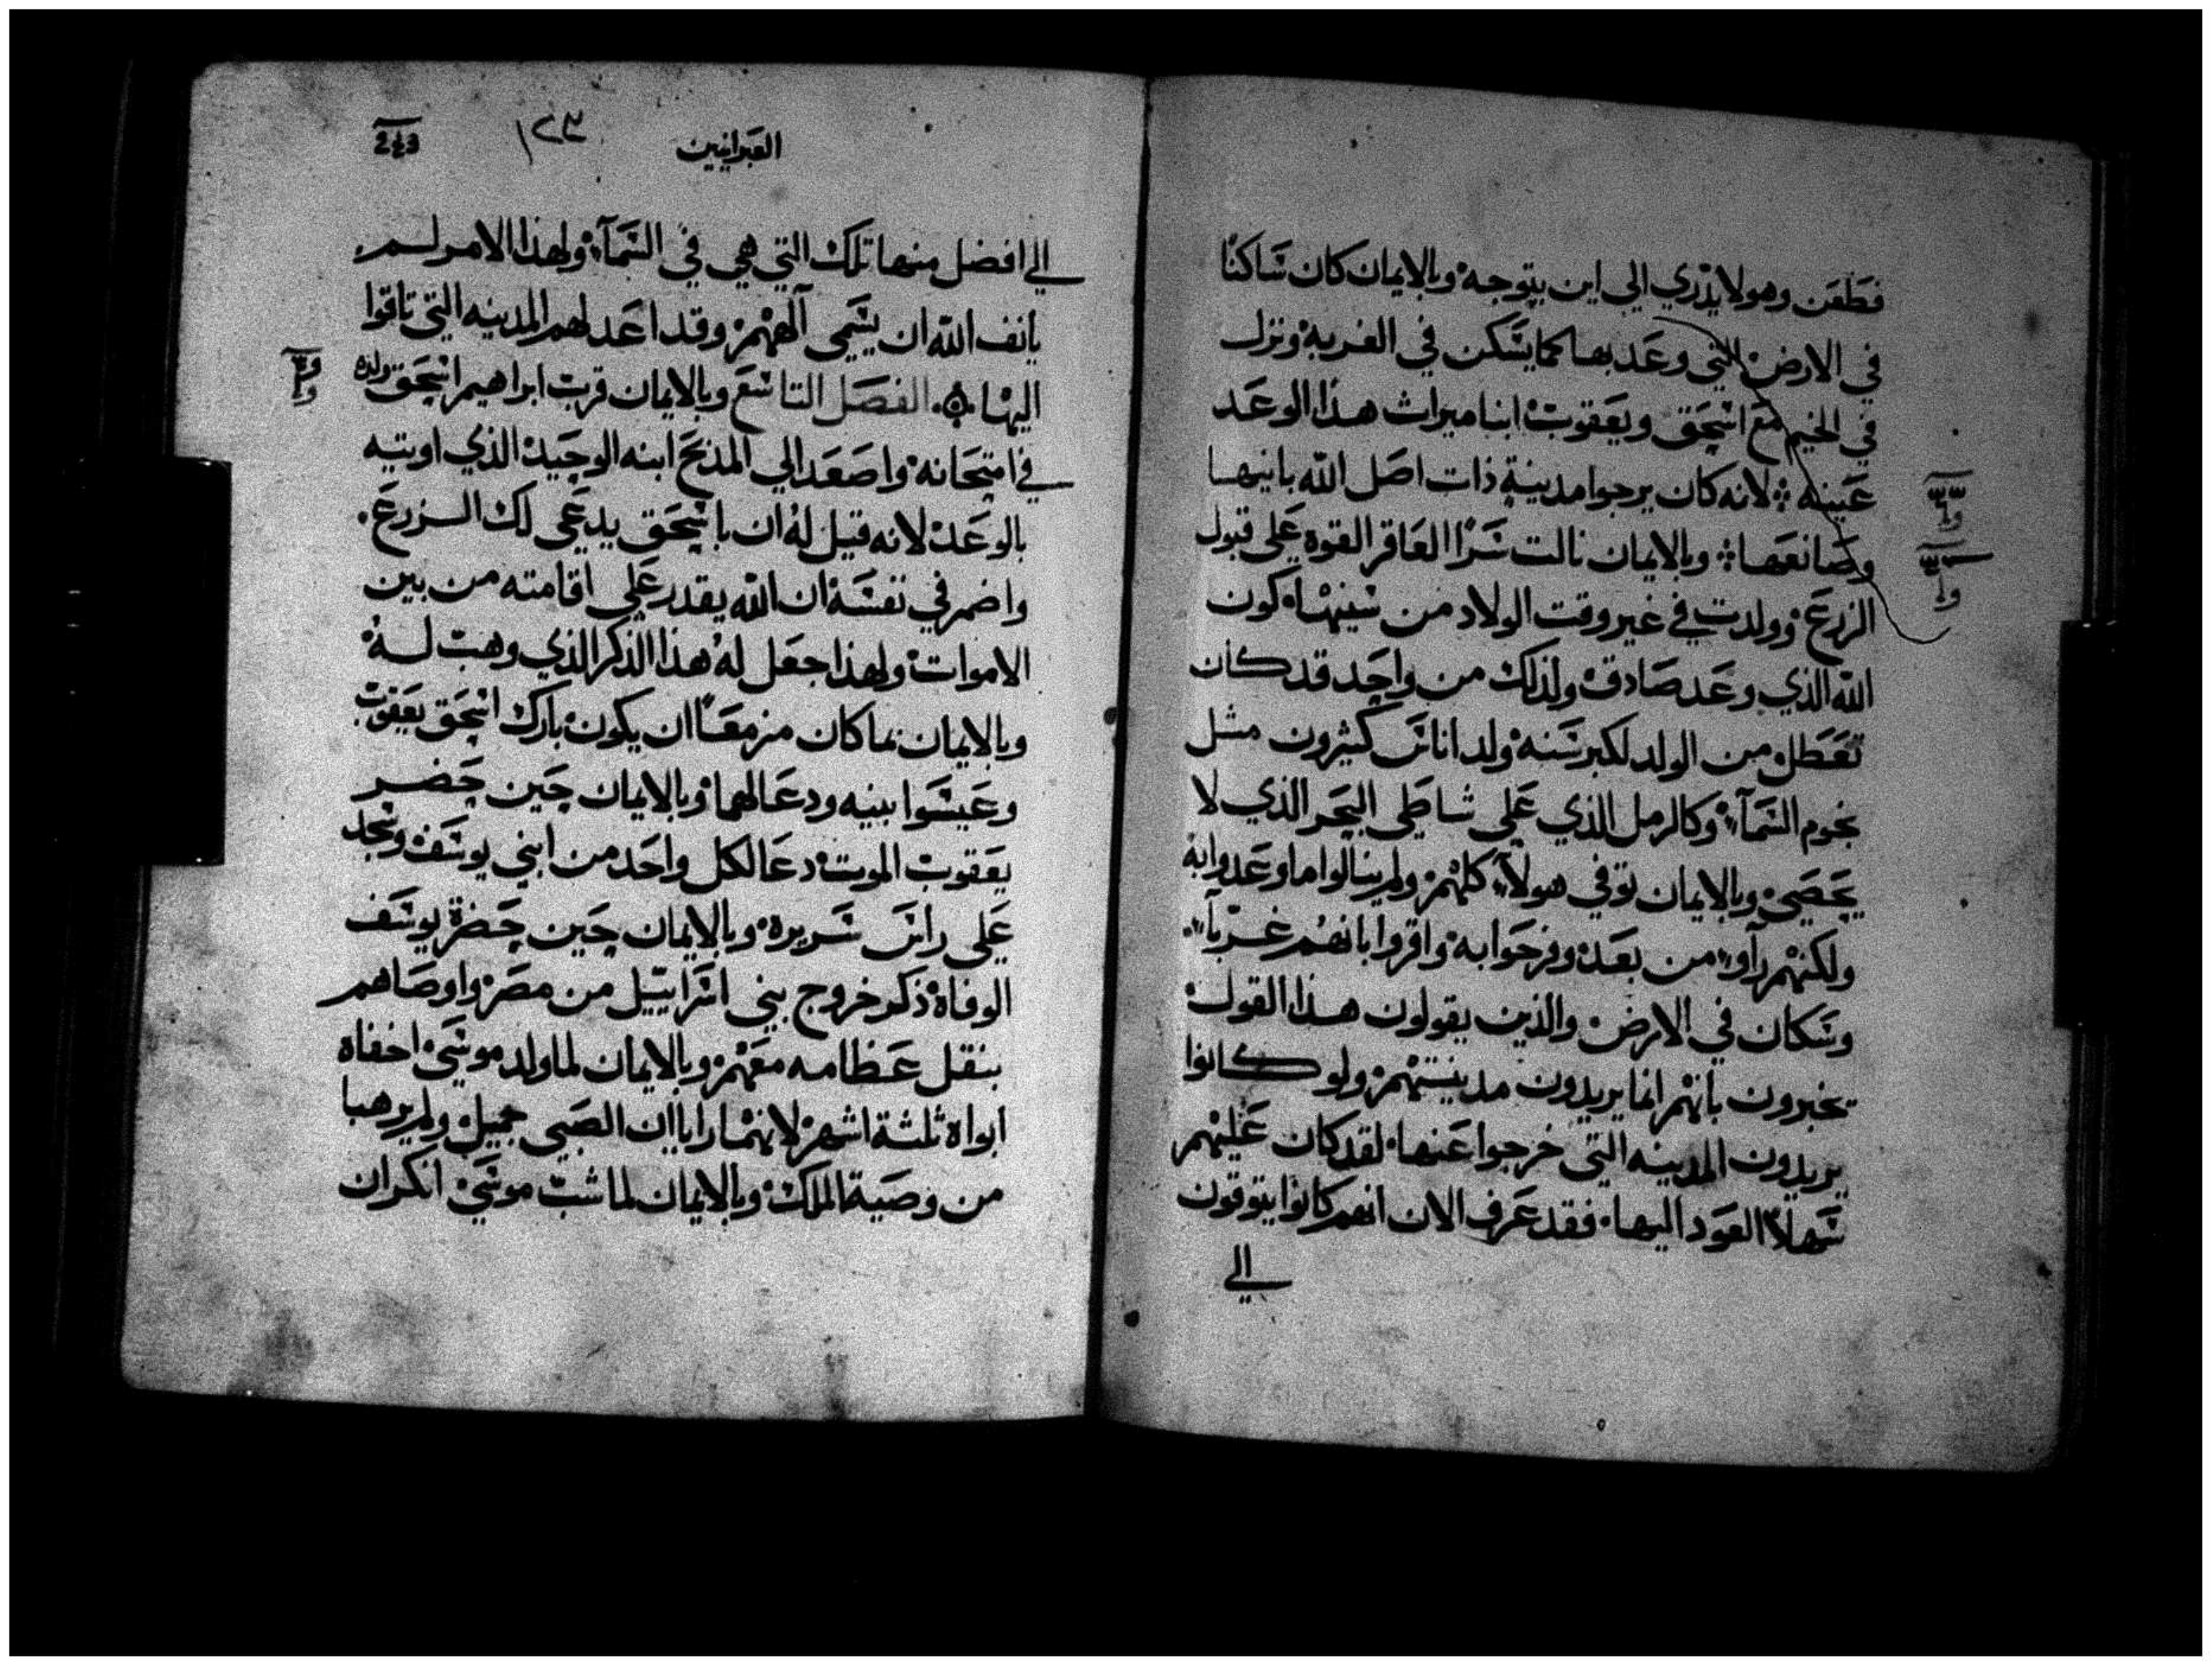 فظعن وهو لا يدري الي اين يتوجه وبالايمان كان ساكنًا
في الارض التي وعد بها كما يسكن في الغربه ونزل
في الخيم مع اسحق ويعقوب ابنا ميراث هذا الوعد
عينه لانه كان يرجوا مدينةٍ ذات اصل الله بانيها
وصانعها وبالايمان نالت سَرًا العاقر القوه علي قبول
الزرع وولدت في غير وقت الولاد من سنيها كون
الله الذي وعد صادق ولذلك من واحد قد كان
تعطل من الولد لكبر سنه ولد اناس كثيرون مثل
نجوم السمآء وكالرمل الذي علي شاطي البحر الذي لا
يحصي وبالايمان توفي هولآء كلهم ولم ينالوا ما وعدوا به
ولكنهم رآوه من بعد وفرحوا به واقروا بانهم غربآء
وسكان في الارض والذين يقولون هذا القول
يخبرون بانهم انما يريدون مدينتهم ولو كانوا
يريدون المدينه التي خرجوا عنها لقد كان عليهم
سهلاً العود اليها فقد عرف الان انهم كانوا يتوقون
الي
العبرانيين ١٢٣ 243
الي افضل منها تلك التي هي في السمآء ولهذا الامر لم
يانف الله ان يسمي آلههم وقد اعد لهم المدينه التي تاقوا
اليها الفصل التاسع وبالايمان قرب ابراهيم اسحق ولده
في امتحانه واصعد الي المذبح ابنه الوحيد الذي اوتيه
بالوعد لانه قيل له ان باسحق يدعي لك الزرع
واضمر في نفسه ان الله يقدر علي اقامته من بين
الاموات ولهذا جعل له هذا الذكر الذي وهب له
وبالايمان بما كان مزمعًا ان يكون بارك اسحق يعقوب
وعيسوا بنيه ودعا لهما وبالايمان حين حضر
يعقوب الموت دعا لكل واحد من ابني يوسف وسجد
علي راس سريره وبالايمان حين حضرة يوسف
الوفاة ذكر خروج بني اسراييل من مصر واوصاهم
بنقل عظامه معهم وبالايمان لما ولد موسي اخفاه
ابواه ثلثة اشهر لانهما رايا ان الصبي جميل ولم يرهبا
من وصية الملك وبالايمان لما شب موسي انكر ان